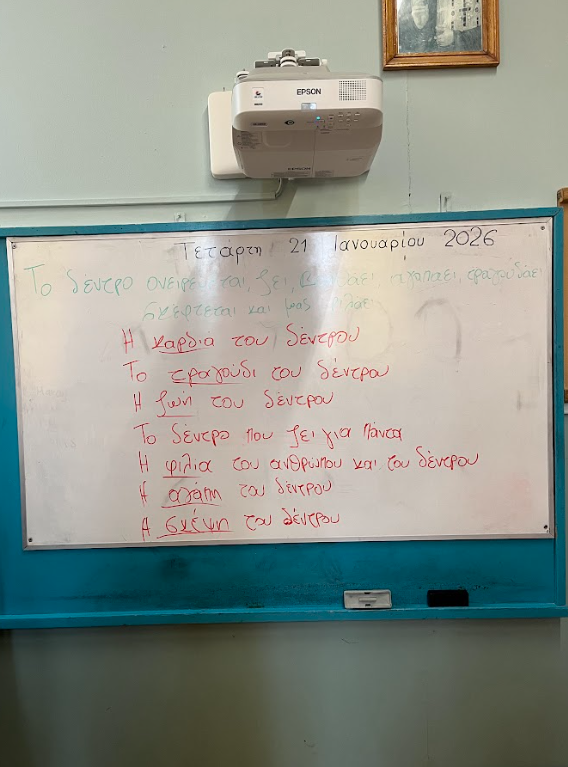 EPSON
EPSON
Τετάρτη 21 Ιανουαρίου 2026
Το δέντρο ονειρεύεται, ζει, αγαπάει, τραγουδάει
σκέφτεται και μας
Η καρδια του δέντρου
Το τραγούδι του δέντρου
Η ζωή του δέντρου
Το δέντρο που ζει για πάντα
Η φιλια του ανθρώπου και του δέντρου
Η αγάπη του δέντρου
Η σκέψη του δέντρου